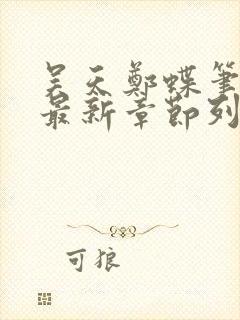 吴天郑蝶笔
最新章节列
可狼